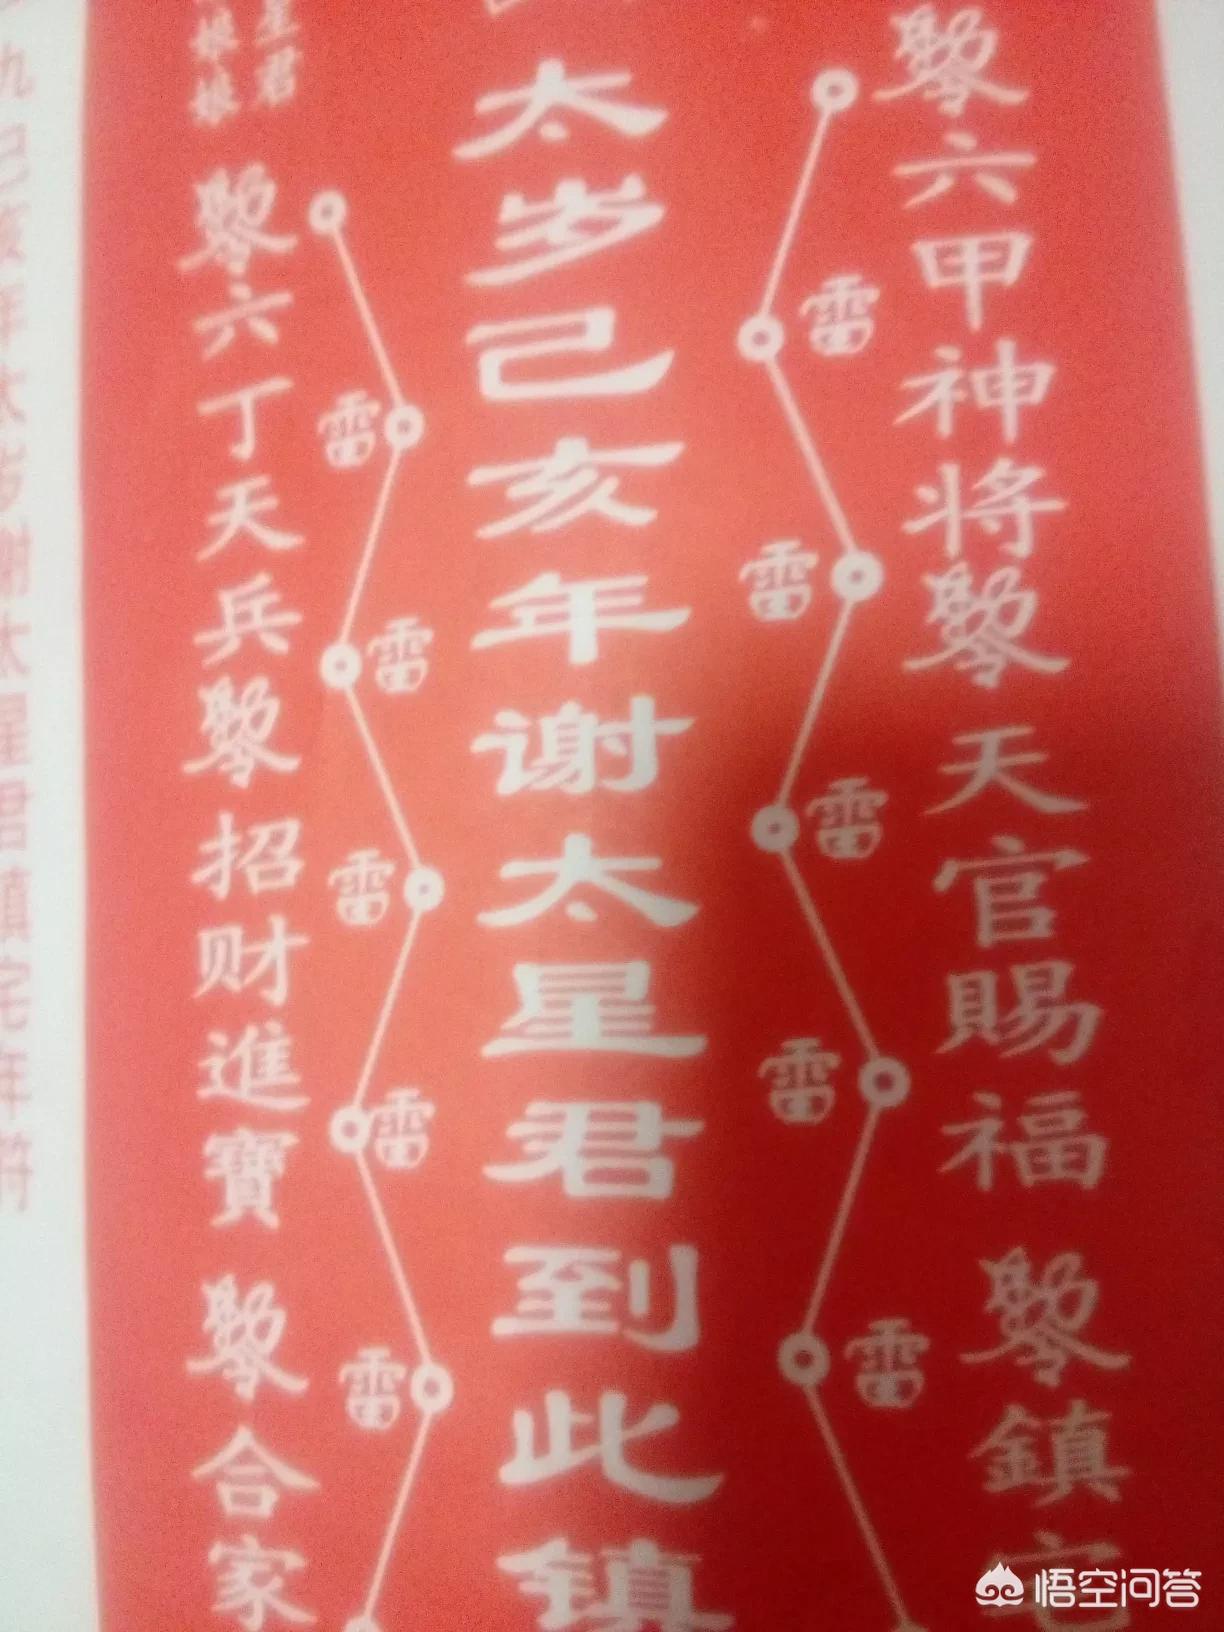 六甲神将 天官賜福 鎮宅
雷
雷
雷
雷
雷
太岁己亥年谢太星君到此镇
雷
雷
雷
雷
雷
星君
娘娘
六丁天兵 招财進寶 合家
九己亥年太岁谢太星君镇宅年符
悟空问答